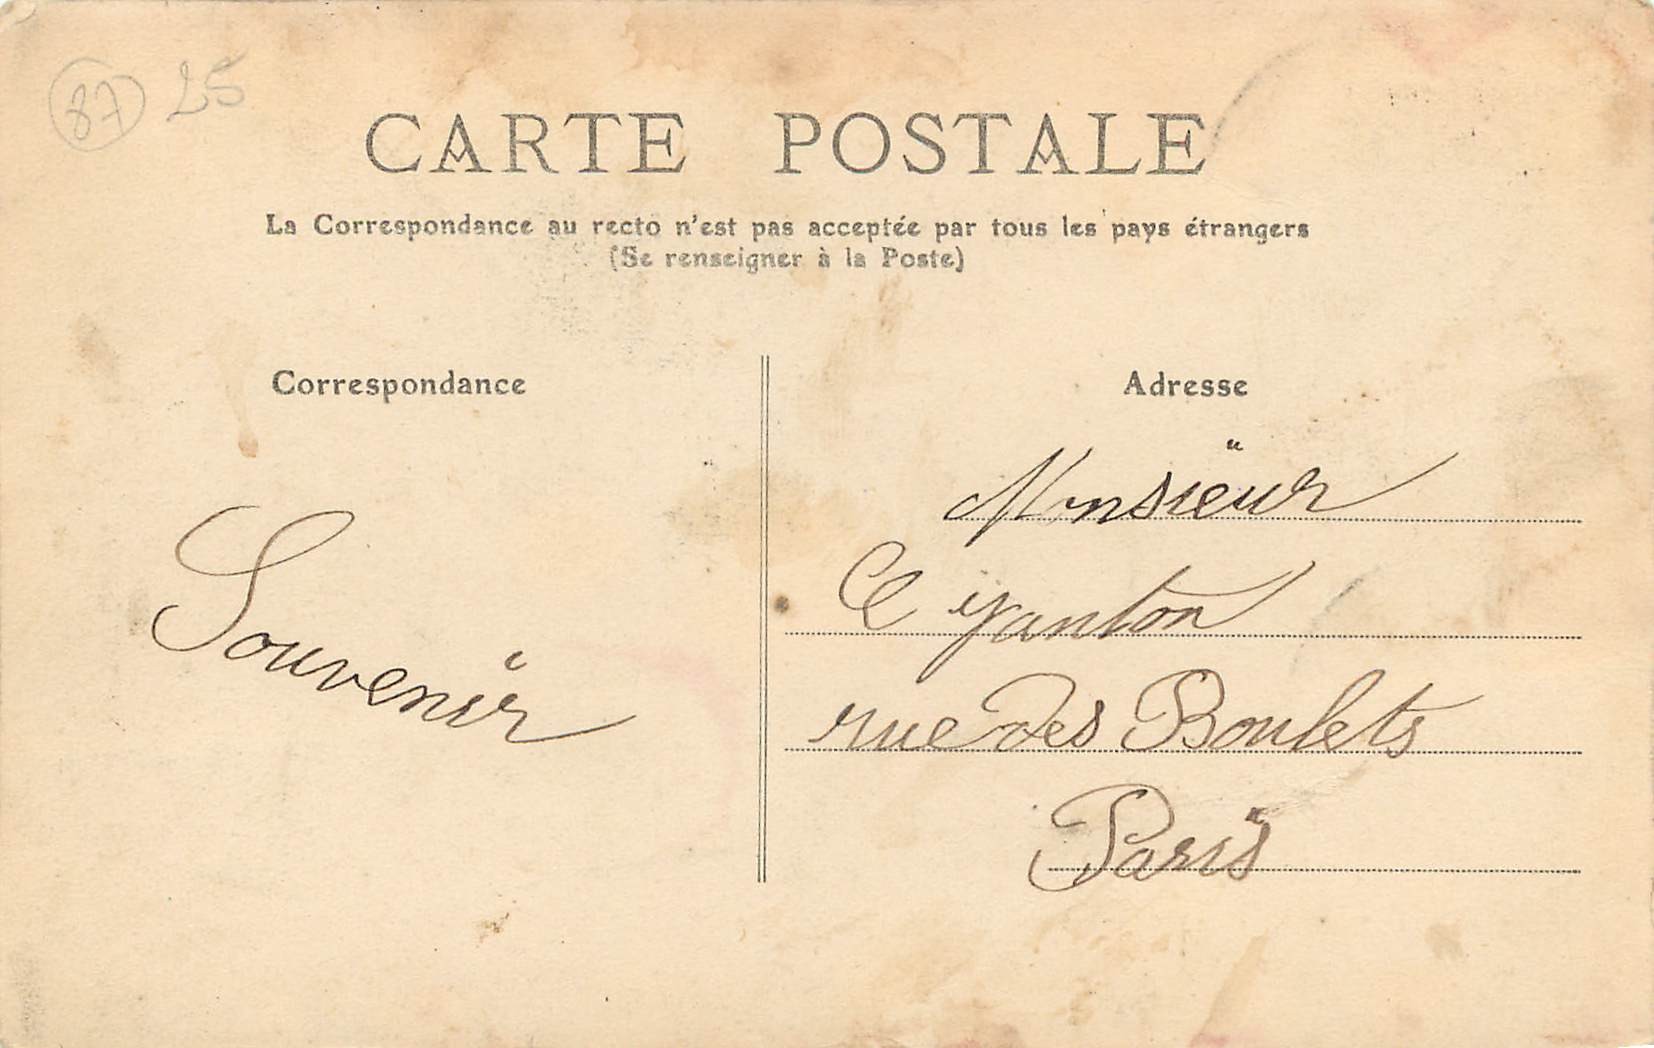 87 25
CARTE POSTALE
La Correspondance au recto n'est pas acceptée par tous les pays étrangers
(Se renseigner à la Poste)
Correspondance
Souvenir
Adresse
Monsieur
rue des Boulets
Paris